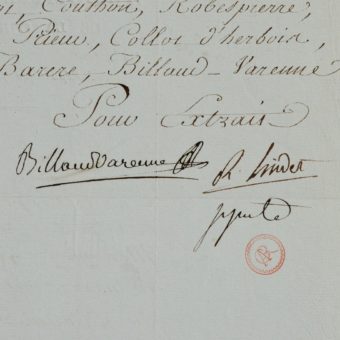 Couthon, Robespierre,
Prieur, Collot d'herbois,
Barere, Billaud-Varenne
Pour Extrait
BillaudVarenne R. Lindet